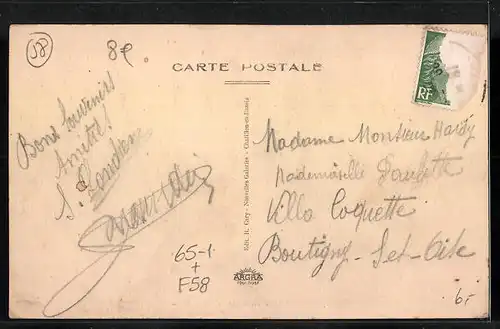 58
8e
CARTE POSTALE
RF
Bons Souvenirs
Amitiés
S.
Edit. R. Gury - Nouvelles Galeries - Chatillon-en-Bazois
Madame Monsieur Hardy
Mademoiselle Paulette
Villa Coquette
Boutigny Set-Oise
65-1
+
F58
ARGRA
6-